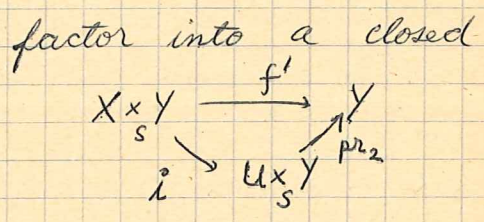 factor into a closed
f'
X ×_S Y → Y
i U ×_S Y pr₂